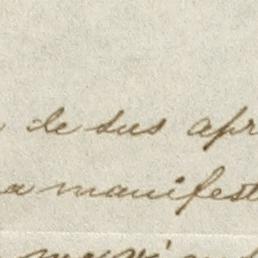 de sus apr
a manifest